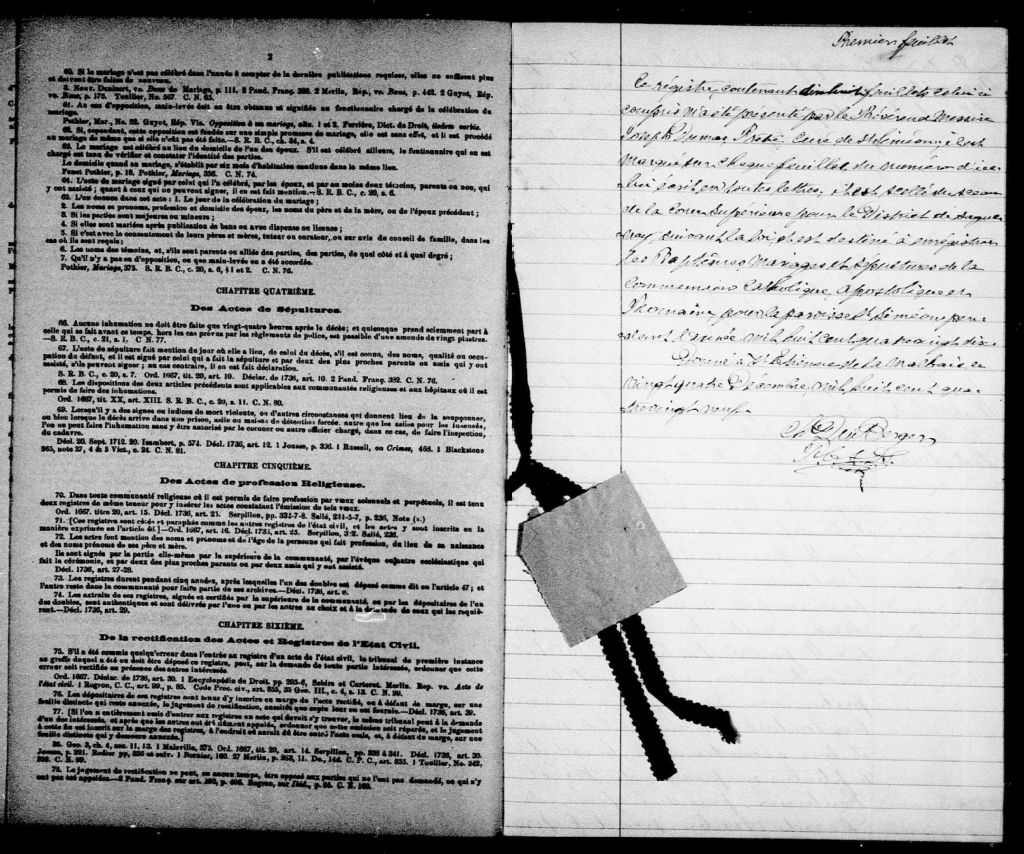 2
60. Si le mariage n'est pas célébré dans l'année à compter de la dernière publications requises, elles ne suffisent plus
et doivent être faites de nouveau.
3. Nouv. Denisart, vo. Bans de Mariage, p. 111. 2 Pand. Franç. 2 Merlin, Rép., vo. Bans, p. 442. 2 Guyot, Rép.
vo. Bans, p. 175. Toullier, No. 567. C. N. 65.
61. Au cas d'opposition, main-levée doit en être obtenue et signifiée au fonctionnaire chargé de la célébration du
mariage.
Pothier, Mar., No. 82. Guyot, Rép. Vis. Opposition à un mariage, 1 et 2. Ferrière, Dict. de Droit, iisdem verbis.
62. Si, cependant, cette opposition est fondée sur une simple promesse de mariage, elle est sans effet, et il est procédé
au mariage de même que si elle n'eût pas été faite.—S. R. B. C., ch. 34, s. 4.
63. Le mariage est célébré au lieu du domicile de l'un des époux. S'il est célébré ailleurs, le fonctionnaire qui en est
chargé est tenu de vérifier et constater l'identité des parties.
Le domicile quant au mariage, s'établit par six mois d'habitation continue dans le même lieu.
Fenet Pothier, p. 18. Pothier, Mariage, 356. C. N. 74.
64. L'acte de mariage signé par celui qui l'a célébré, par les époux, et par au moins deux témoins, parents ou non, qui
y ont assisté ; quant à ceux qui ne peuvent signer, il en est fait mention.—S. R. B. C., c. 20, s. 6.
65. L'on énonce dans cet acte : 1. Le jour de la célébration du mariage ;
2. Les noms et prénoms, profession et domicile des époux, les noms du père et de la mère, ou de l'époux précédent ;
3. Si les parties sont majeures ou mineures ;
4. Si elles sont mariées après publication de bans ou avec dispense ou licence ;
5. Si c'est avec le consentement de leurs pères et mères, tuteur ou curateur, ou sur avis du conseil de famille, dans les
cas où ils sont requis ;
6. Les noms des témoins, et, s'ils sont parents ou alliés des parties, de quel côté et à quel degré ;
7. Qu'il n'y a pas eu d'opposition, ou que main-levée en a été accordée.
Pothier, Mariage, 375. S. R. B. C., c. 20, s. 6, §1 et 2. C. N. 76.
CHAPITRE QUATRIÈME.
Des Actes de Sépultures.
66. Aucune inhumation ne doit être faite que vingt-quatre heures après le décès ; et quiconque prend sciemment part à
celle qui se fait avant ce temps, hors les cas prévus par les règlements de police, est passible d'une amende de vingt piastres.
—S. R. B. C., c. 21, s. 1. C. N. 77.
67. L'acte de sépulture fait mention du jour où elle a lieu, de celui du décès, s'il est connu, des noms, qualité ou occu-
pation du défunt, et il est signé par celui qui a fait la sépulture et par deux des plus proches parents ou amis qui y ont
assisté, s'ils peuvent signer ; au cas contraire, il en est fait déclaration.
S. R. B. C., c. 20, s. 7. Ord. 1667, tit. 20, art. 10. Déclar. de 1736, art. 10. 2 Pand. Franç. 382. C. N. 76.
68. Les dispositions des deux articles précédents sont applicables aux communautés religieuses et aux hôpitaux où il est
permis de faire des inhumations.
Ord. 1667, tit. XX, art. XIII. S. R. B. C., c. 20, s. 11. C. N. 80.
69. Lorsqu'il y a des signes ou indices de mort violente, ou d'autres circonstances qui donnent lieu de la soupçonner,
ou bien lorsque le décès arrive dans une prison, asile ou maison de détention forcée, autre que les asiles pour les insensés,
l'on ne peut faire l'inhumation sans y être autorisé par le coroner ou autre officier chargé, dans ce cas, de faire l'inspection,
du cadavre.
Décl. 20. Sept. 1712. 20 Isambert, p. 574. Décl. 1736, art. 12. 1 Jousse, p. 336. 1 Russell, on Crimes, 468. 1 Blackstone
265, note 27, 4 & 5 Vict., c. 24. C. N. 81.
CHAPITRE CINQUIÈME.
Des Actes de profession Religieuse.
70. Dans toute communauté religieuse où il est permis de faire profession par vœux solennels et perpétuels, il est tenu
deux registres de même teneur pour y insérer les actes constatant l'émission de tels vœux.
Ord. 1667, titre 20, art. 15. Décl. 1736, art. 25. Serpillon, pp. 332-7-8. Sallé, 231-5-7, p. 236, Note (a.)
71. [Ces registres sont cotés et paraphés comme les autres registres de l'état civil, et les actes y sont inscrits en la
manière exprimée en l'article 46.]—Ord. 1667, art. 16. Décl. 1736, art. 25. Serpillon, 332. Sallé, 236.
72. Les actes font mention des noms et prénoms et de l'âge de la personne qui fait profession, du lieu de sa naissance
et des noms et prénoms de ses père et mère.
Ils sont signés par la partie elle-même par la supérieure de la communauté, par l'évêque ou autre ecclésiastique qui
fait la cérémonie, et par deux des plus proches parents ou par deux amis qui y ont assisté.
Décl. 1736, art. 27-28.
73. Les registres durent pendant cinq années, après lesquelles l'un des doubles est déposé comme dit en l'article 47 ; et
l'autre reste dans la communauté pour faire partie de ses archives.—Décl. 1736, art. 8.
74. Les extraits de ces registres, signés et certifiés par la supérieure de la communauté, ou par les dépositaires de l'un
des doubles, sont authentiques et sont délivrés par l'une ou par les autres au choix et à la demande de ceux qui les requiè-
rent.—Décl. 1736, art. 29.
CHAPITRE SIXIÈME.
De la rectification des Actes et Registres de l'Etat Civil.
75. S'il a été commis quelqu'erreur dans l'entrée au registre d'un acte de l'état civil, le tribunal de première instance
au greffe duquel a été ou doit être déposé ce registre, peut, sur la demande de toute partie intéressée, ordonner que cette
erreur soit rectifiée en présence des autres intéressés.
Ord. 1667. Déclar. de 1736, art. 30. 1 Encyclopédie de Droit, pp. 205-6, Sebire et Carteret. Merlin. Rep. vo. Acte de
l'état civil. 1 Rogron, C. C., art. 99, p. 85. Code Proc. civ., art. 855, 35 Geo. III., c. 4, s. 13. C. N. 99.
76. Les dépositaires de ces registres sont tenus d'y inscrire en marge de l'acte rectifié, et à défaut de marge, sur une
feuille distincte qui reste annexée, le jugement de rectification, aussitôt que copie leur en est fournie.—Décl. 1736, art. 30.
77. [Si l'on a entièrement omis d'entrer aux registres un acte qui devait s'y trouver, le même tribunal peut à la demande
d'un des intéressés, et après que les autres ont été dûment appelés, ordonner que cette omission soit réparée, et le jugement
à cette fin est inscrit sur la marge des registres, à l'endroit où aurait dû être entré l'acte omis, et, à défaut de marge, sur une
feuille distincte qui y demeure annexée.]
35. Geo. 3, ch. 4, sec. 11, 13. 1 Maleville, 373. Ord. 1667, tit. 20, art. 14. Serpillon, pp. 336 à 341. Décl. 1736, art. 30.
Jousse, p. 291. Rodier pp, 336 et suiv. 1 Bornier, 160. 27 Merlin, p. 263, 11. Do., 146. C. P. C., art. 855. 1 Toullier, No. 342,
C. N. 99.
78. Le jugement de rectification ne peut, en aucun temps, être opposé aux parties qui ne l'ont pas demandé, ou qui n'y
ont pas été appelées.—2 Pand. Franç. sur art. 100, p. 406. Rogron, sur Ibid., p. 86. C. N. 100.
Premier feuillet
Ce régistre, contenant dix huit feuillets celui ci
compris m'a été présenté par le Révérend Messire
Joseph Dumas Ptre, curé de St Siméon, il est
marqué sur chaque feuillet du numéro d'ice-
lui écrit en toutes lettres, il est scellé du sceau
de la Cour Supérieure pour le District de Sague-
nay, suivant la loi, et est destiné à enrégistrer
les Baptêmes, Mariages et Sépultures de la
Communion Catholique, Apostolique et
Romaine pour la paroisse St Siméon pen-
dant l'année mil huit cent quatre vingt dix
Donné à St Etienne de la Malbaie ce
vingt quatre Décembre, mil huit cent qua-
tre vingt neuf.